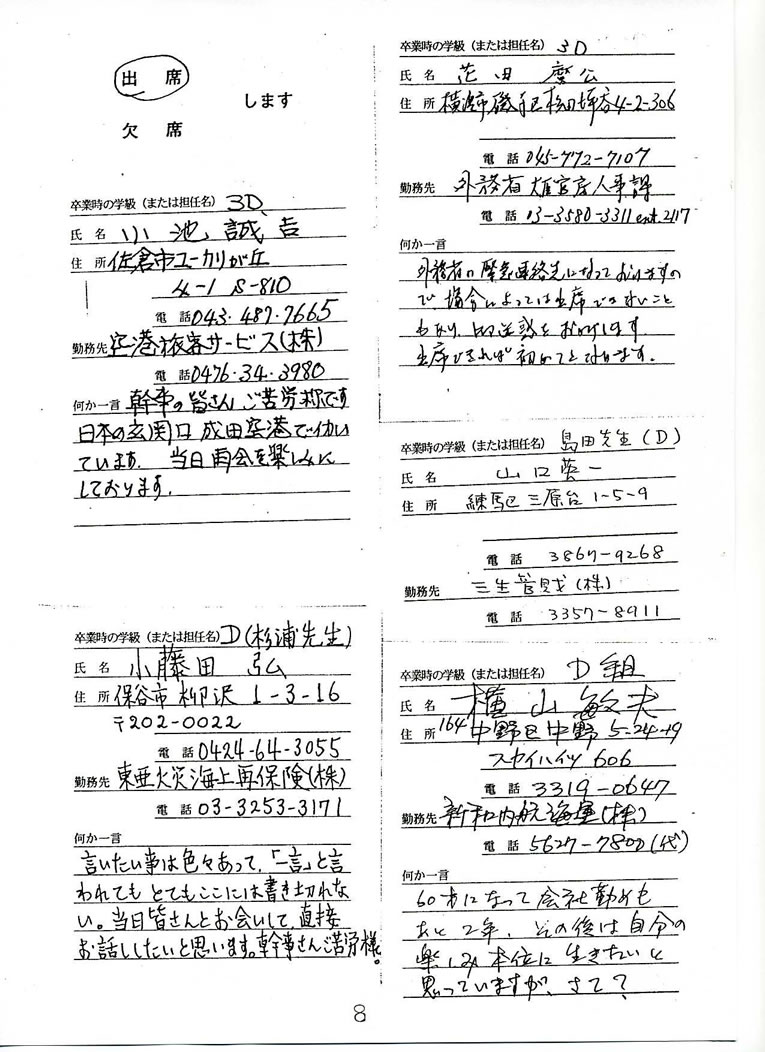 出席
します
欠席
卒業時の学級（または担任名） 3D
氏名 小池 誠吉
住所 佐倉市ユーカリが丘
4-1 S-810
電話 043-487-7665
勤務先 空港旅客サービス(株)
電話 0476-34-3980
何か一言 幹事の皆さんご苦労様です
日本の玄関口 成田空港で働い
ています. 当日再会を楽しみに
しております.
卒業時の学級（または担任名） D(杉浦先生)
氏名 小藤田 弘
住所 保谷市 柳沢 1-3-16
〒202-0022
電話 0424-64-3055
勤務先 東亜火災海上再保険(株)
電話 03-3253-3171
何か一言
言いたい事は色々あって,「一言」と言
われても とてもここには書き切れな
い。当日皆さんとお会いして,直接
お話ししたいと思います。幹事さんご苦労様。
卒業時の学級（または担任名） 3D
氏名 田
住所 横浜市磯子区 4-2-306
電話 045-772-7107
勤務先 外務省 大臣官房人事課
電話 03-3580-3311 ext.2117
何か一言
外務省の緊急連絡先になっておりますの
で、場合によっては出席できないこと
もあり、ご迷惑をおかけします.
出席できれば初めてとなります.
卒業時の学級（または担任名） 島田先生(D)
氏名 山口英一
住所 練馬区三原台 1-5-9
電話 3867-9268
勤務先 三生管財(株)
電話 3357-8911
卒業時の学級（または担任名） D組
氏名 横山敏夫
住所 164 中野区中野 5-24-19
スカイハイツ 606
電話 3319-0647
勤務先 新和内航海運(株)
電話 5627-7800(代)
何か一言
60才になって会社勤めも
あと2年, その後は自分の
楽しみ本位に生きたいと
思っていますが, さて?
8